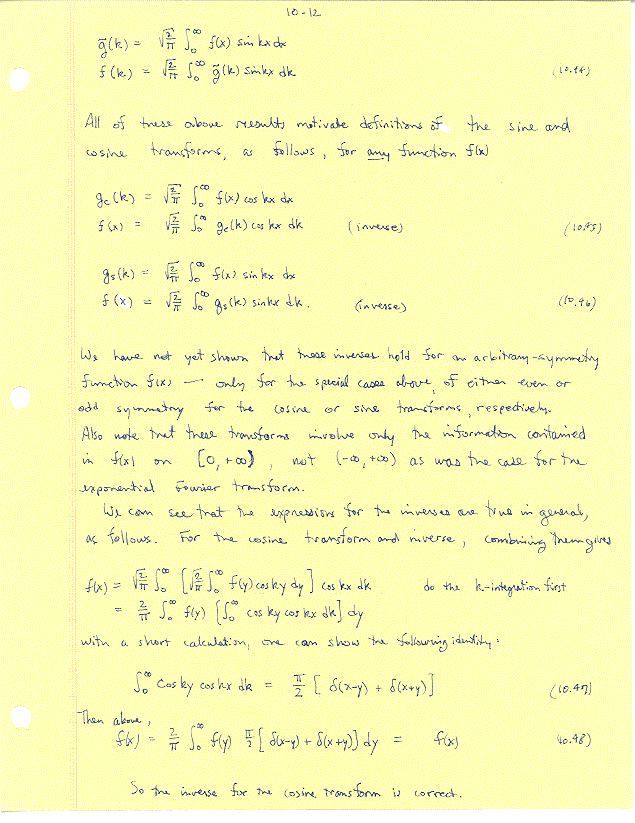 10-12
g̃(k) = √(2/π) ∫₀^∞ f(x) sin kx dx
f(k) = √(2/π) ∫₀^∞ g̃(k) sin kx dk (10.44)
All of these above results motivate definitions of the sine and
cosine transforms, as follows, for any function f(x)
g_c(k) = √(2/π) ∫₀^∞ f(x) cos kx dx
f(x) = √(2/π) ∫₀^∞ g_c(k) cos kx dk (inverse) (10.45)
g_s(k) = √(2/π) ∫₀^∞ f(x) sin kx dx
f(x) = √(2/π) ∫₀^∞ g_s(k) sin kx dk. (inverse) (10.46)
We have not yet shown that these inverses hold for an arbitrary-symmetry
function f(x) — only for the special cases above, of either even or
odd symmetry for the cosine or sine transforms, respectively.
Also note that these transforms involve only the information contained
in f(x) on [0, +∞), not (-∞, +∞) as was the case for the
exponential Fourier transform.
We can see that the expressions for the inverses are true in general,
as follows. For the cosine transform and inverse, combining them gives
f(x) = √(2/π) ∫₀^∞ [√(2/π) ∫₀^∞ f(y) cos ky dy] cos kx dk do the k-integration first
= 2/π ∫₀^∞ f(y) [∫₀^∞ cos ky cos kx dk] dy
With a short calculation, one can show the following identity:
∫₀^∞ cos ky cos kx dk = π/2 [δ(x-y) + δ(x+y)] (10.47)
Then above,
f(x) = 2/π ∫₀^∞ f(y) π/2 [δ(x-y) + δ(x+y)] dy = f(x) (10.48)
So the inverse for the cosine transform is correct.